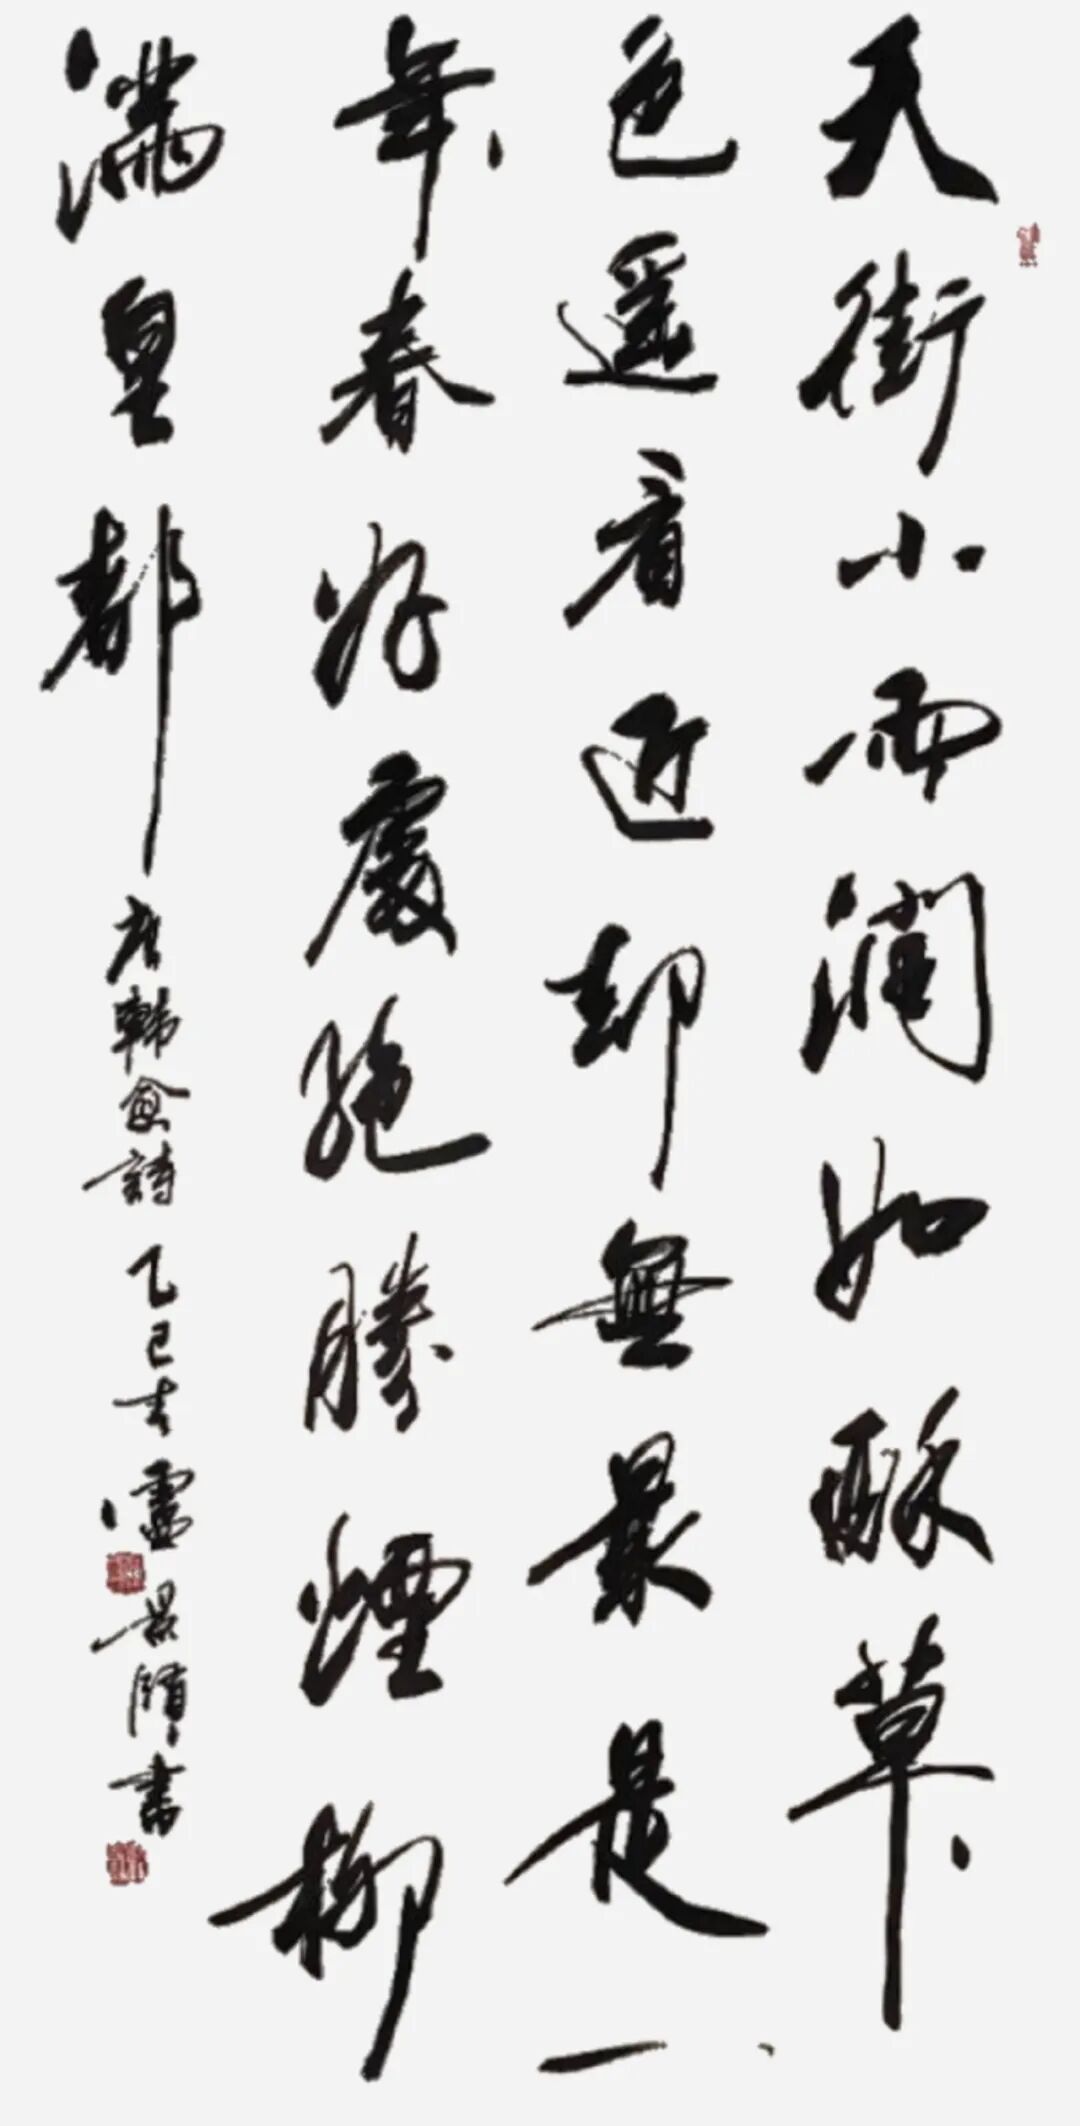 天街小雨潤如酥草
色遥看近却無最是一
年春好處絕勝煙柳
滿皇都
唐韓愈詩 乙巳書